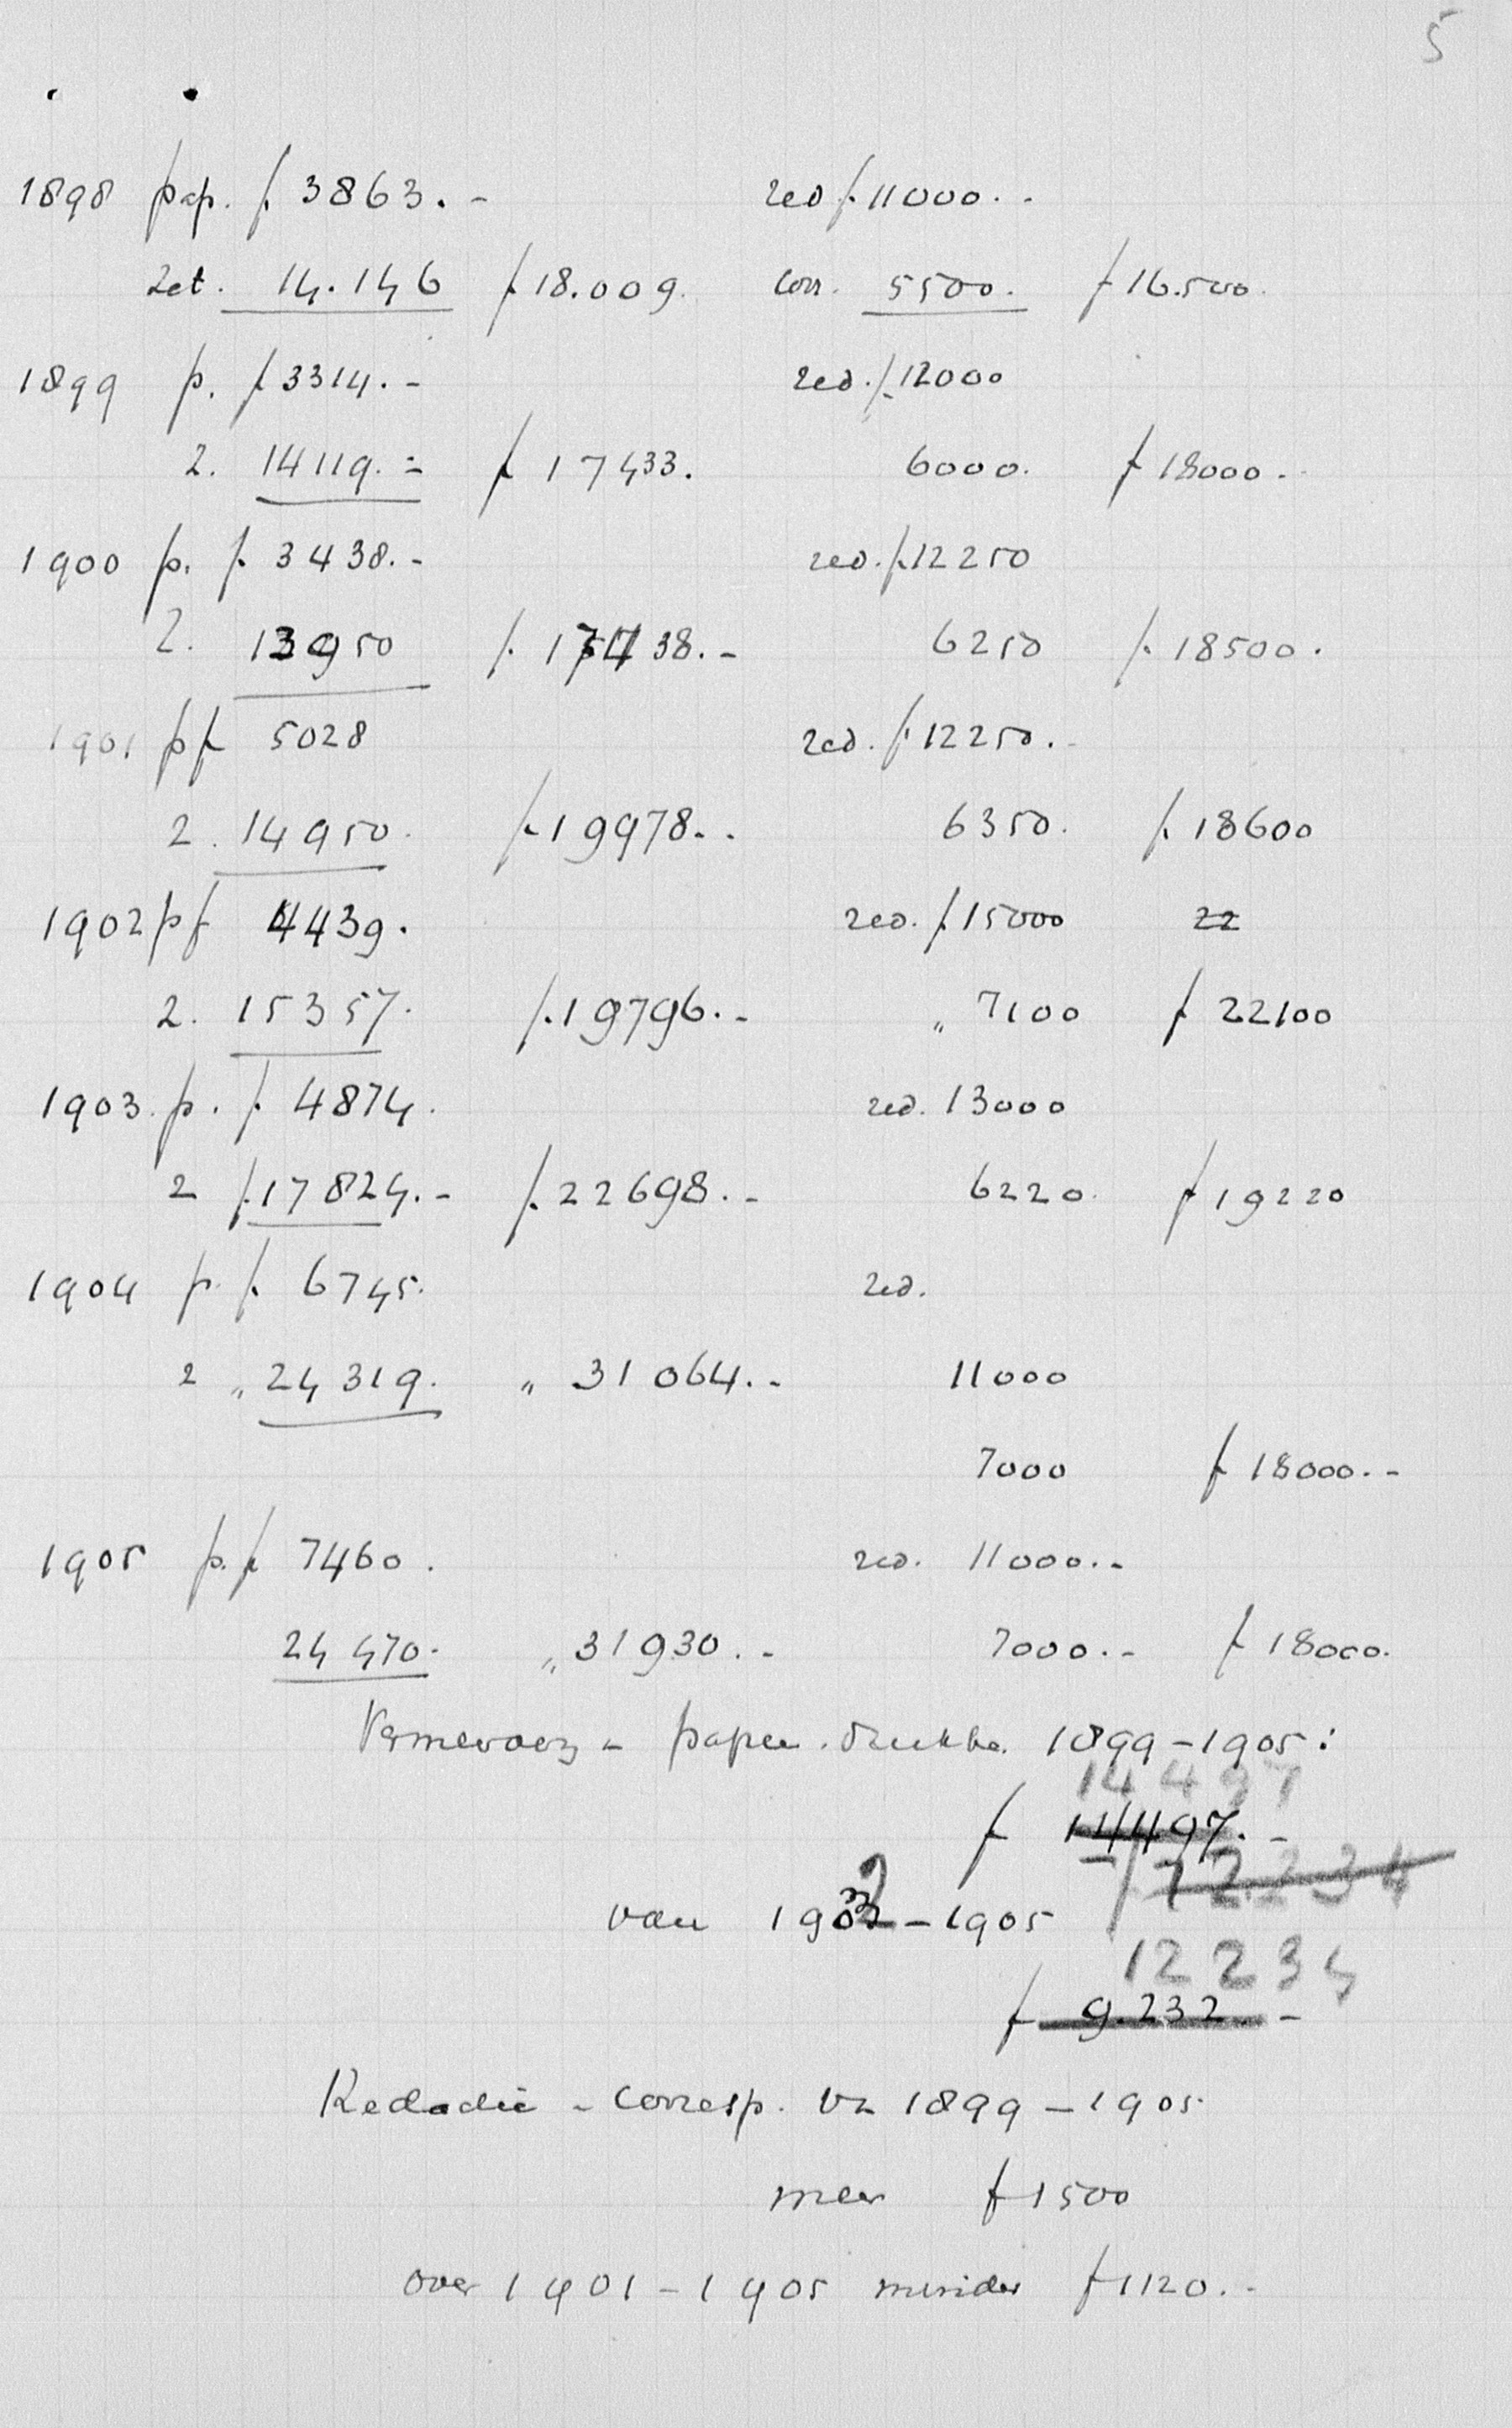 5
1898 pap. f. 3863.- red f. 11000.-
Zet. 14.146 f 18.009. corr. 5500. f 16.500.
1899 p. f 3314.- red. f. 12000
z. 14119.- f 17433. 6000. f 18000.-
1900 p. f. 3438.- red. f. 12250
z. 13950 f. 17438.- 6250 f. 18500.
1901 p f 5028 red. f. 12250.-
z. 14950. f. 19978.- 6350. f. 18600
1902 p f 4439. red. f. 15000 22
z. 15357. f. 19796.- " 7100 f 22100
1903. p. f. 4874. red. 13000
z f. 17824.- f. 22698.- 6220. f 19220
1904 p. f. 6745. red.
z " 24319. " 31064.- 11000
7000 f 18000.-
1905 p. f 7460. red. 11000.-
24470. " 31930.- 7000.- f 18000.
papier. 1899-1905:
14497
f 14497.-
f 12234
van 1903-1905
12234
f 9.232.-
Redactie - Corresp. 1899-1905
meer f 1500
over 1901-1905 minder f 1120.-